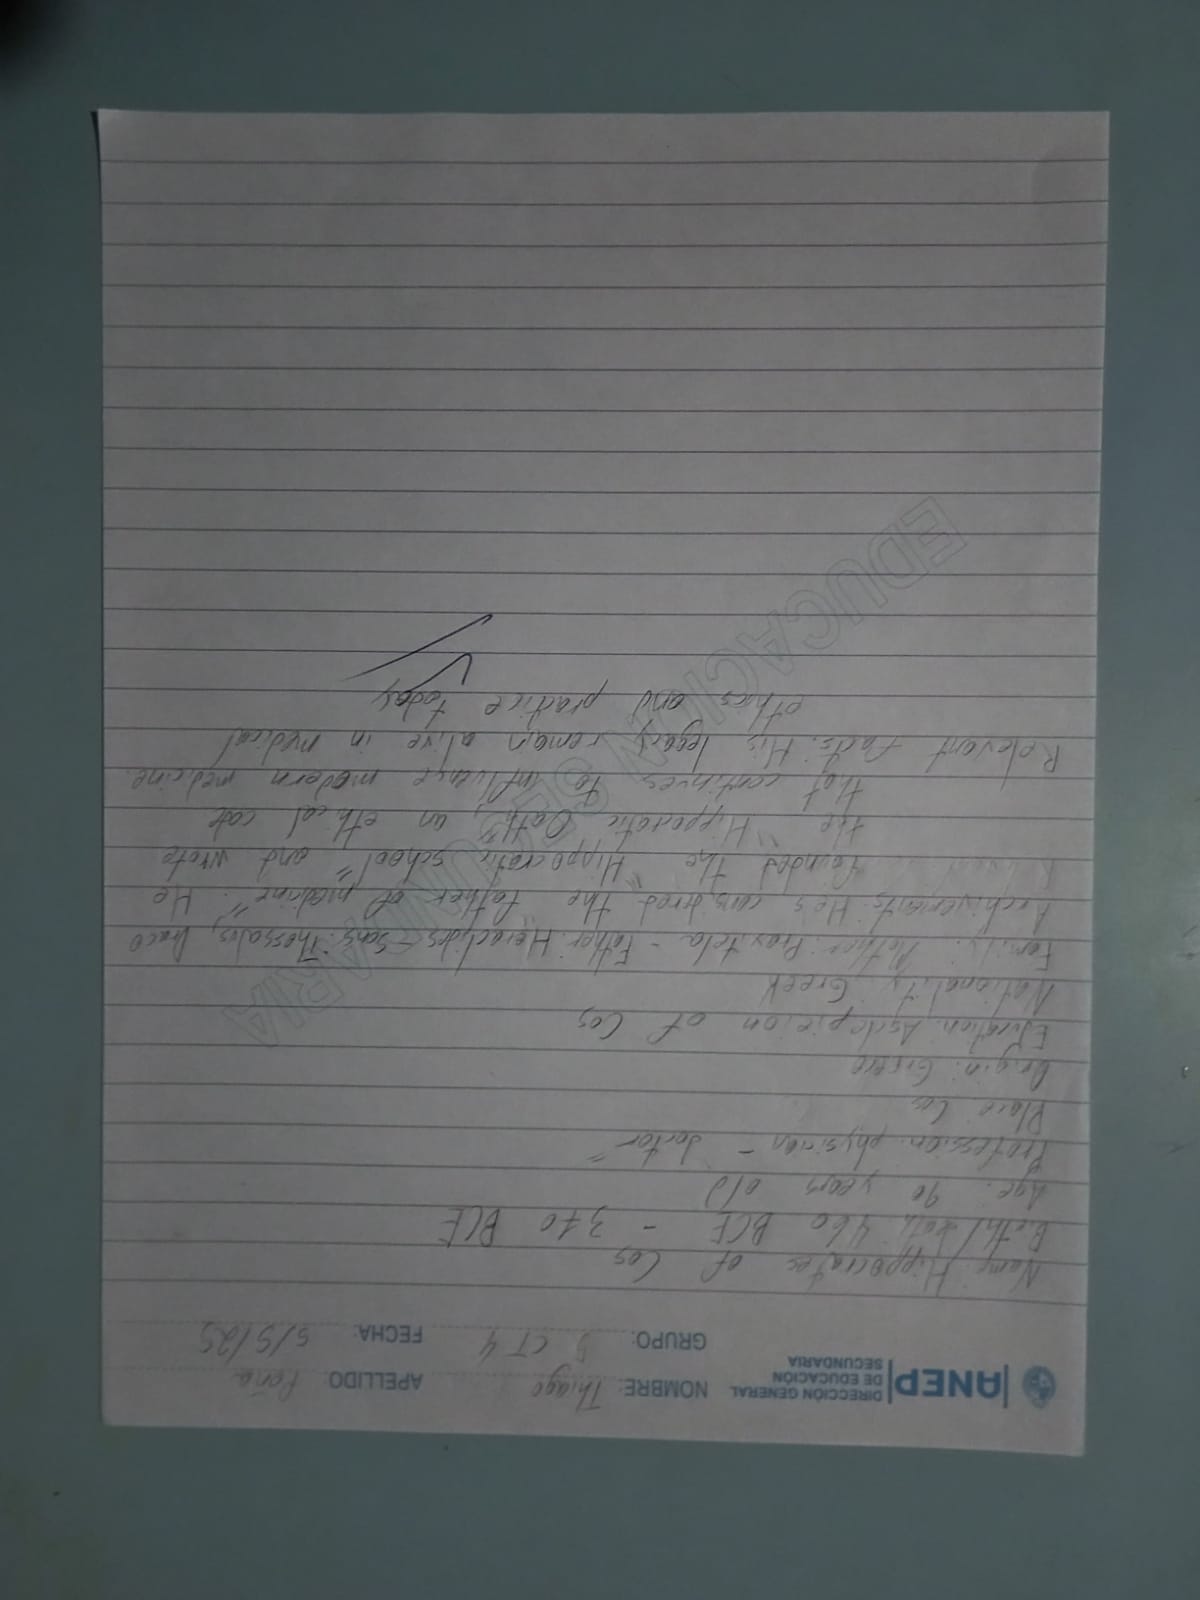 ANEP DIRECCIÓN GENERAL DE EDUCACIÓN SECUNDARIA
NOMBRE: Thiago APELLIDO: Peña
GRUPO: 5 CT 4 FECHA: 5/5/25
Name: Hippocrates of Cos
Birth/death: 460 BCE - 370 BCE
Age: 90 years old
Profession: physician - "doctor"
Place: Cos
Origin: Greece
Education: Asclepieion of Cos
Nationality: Greek
Family: Mother: Praxitela - Father: Heraclides - Sons: Thessalus, Draco
Archivements: He's considered the "father of medicine". He
founded the "Hippocratic school", and wrote
the "Hippocratic Oath", an ethical code
that continues to influence modern medicine.
Relevant facts: His legacy remain alive in medical
ethics and practice today
EDUCACIÓN SECUNDARIA